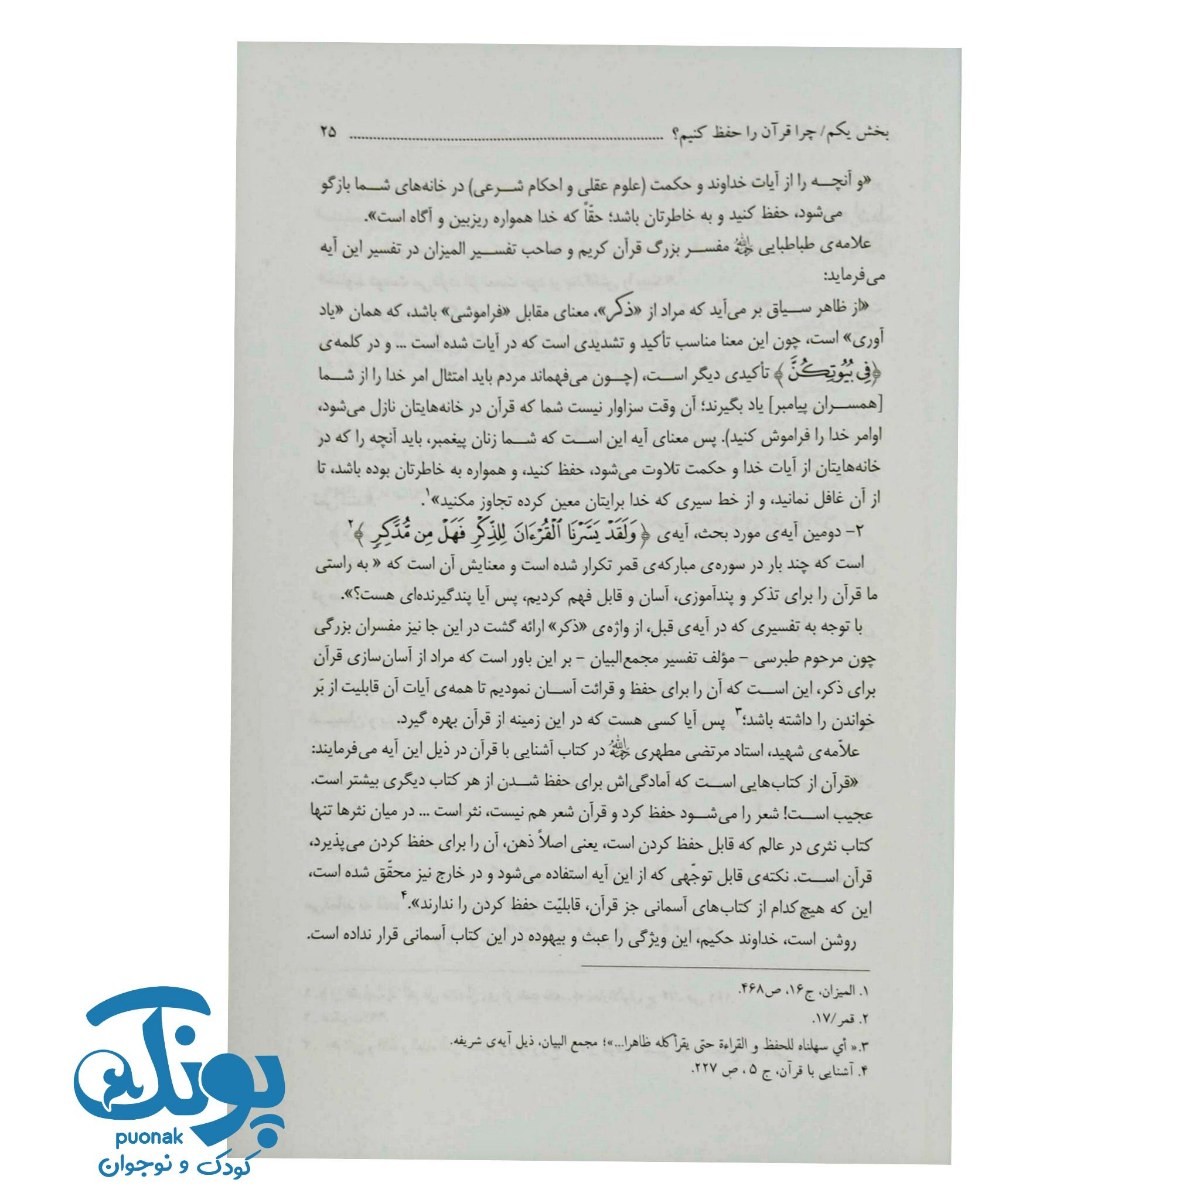 بخش یکم/ چرا قرآن را حفظ کنیم؟ ........................................................ ۲۵
«و آنچه را از آیات خداوند و حکمت (علوم عقلی و احکام شرعی) در خانه‌های شما بازگو
می‌شود، حفظ کنید و به خاطرتان باشد؛ حقّاً که خدا همواره ریزبین و آگاه است».
علامه‌ی طباطبایی رحمه‌الله مفسر بزرگ قرآن کریم و صاحب تفسیر المیزان در تفسیر این آیه
می‌فرماید:
«از ظاهر سیاق بر می‌آید که مراد از «ذکر»، معنای مقابل «فراموشی» باشد، که همان «یاد
آوری» است، چون این معنا مناسب تأکید و تشدیدی است که در آیات شده است ... و در کلمه‌ی
﴿فِي بُيُوتِكُنَّ﴾ تأکیدی دیگر است، (چون می‌فهماند مردم باید امتثال امر خدا را از شما
[همسران پیامبر] یاد بگیرند؛ آن وقت سزاوار نیست شما که قرآن در خانه‌هایتان نازل می‌شود،
اوامر خدا را فراموش کنید). پس معنای آیه این است که شما زنان پیغمبر، باید آنچه را که در
خانه‌هایتان از آیات خدا و حکمت تلاوت می‌شود، حفظ کنید، و همواره به خاطرتان بوده باشد، تا
از آن غافل نمانید، و از خط سیری که خدا برایتان معین کرده تجاوز مکنید»۱.
۲- دومین آیه‌ی مورد بحث، آیه‌ی ﴿وَلَقَدْ يَسَّرْنَا ٱلْقُرْءَانَ لِلذِّكْرِ فَهَلْ مِن مُّدَّكِرٍ﴾۲
است که چند بار در سوره‌ی مبارکه‌ی قمر تکرار شده است و معنایش آن است که « به راستی
ما قرآن را برای تذکر و پندآموزی، آسان و قابل فهم کردیم، پس آیا پندگیرنده‌ای هست؟».
با توجه به تفسیری که در آیه‌ی قبل، از واژه‌ی «ذکر» ارائه گشت در این جا نیز مفسران بزرگی
چون مرحوم طبرسی - مؤلف تفسیر مجمع‌البیان - بر این باور است که مراد از آسان‌سازی قرآن
برای ذکر، این است که آن را برای حفظ و قرائت آسان نمودیم تا همه‌ی آیات آن قابلیت از بَر
خواندن را داشته باشد؛۳ پس آیا کسی هست که در این زمینه از قرآن بهره گیرد.
علاّمه‌ی شهید، استاد مرتضی مطهری رحمه‌الله در کتاب آشنایی با قرآن در ذیل این آیه می‌فرمایند:
«قرآن از کتاب‌هایی است که آمادگی‌اش برای حفظ شدن از هر کتاب دیگری بیشتر است.
عجیب است! شعر را می‌شود حفظ کرد و قرآن شعر هم نیست، نثر است ... در میان نثرها تنها
کتاب نثری در عالم که قابل حفظ کردن است، یعنی اصلاً ذهن، آن را برای حفظ کردن می‌پذیرد،
قرآن است. نکته‌ی قابل توجّهی که از این آیه استفاده می‌شود و در خارج نیز محقّق شده است،
این که هیچ‌کدام از کتاب‌های آسمانی جز قرآن، قابلیّت حفظ کردن را ندارند».۴
روشن است، خداوند حکیم، این ویژگی را عبث و بیهوده در این کتاب آسمانی قرار نداده است.
۱. المیزان، ج۱۶، ص۴۶۸.
۲. قمر/۱۷.
۳.« أي سهلناه للحفظ و القراءة حتى يقرأ كله ظاهرا...»؛ مجمع البیان، ذیل آیه‌ی شریفه.
۴. آشنایی با قرآن، ج ۵ ، ص ۲۲۷.
پونک
puonak
کودک و نوجوان